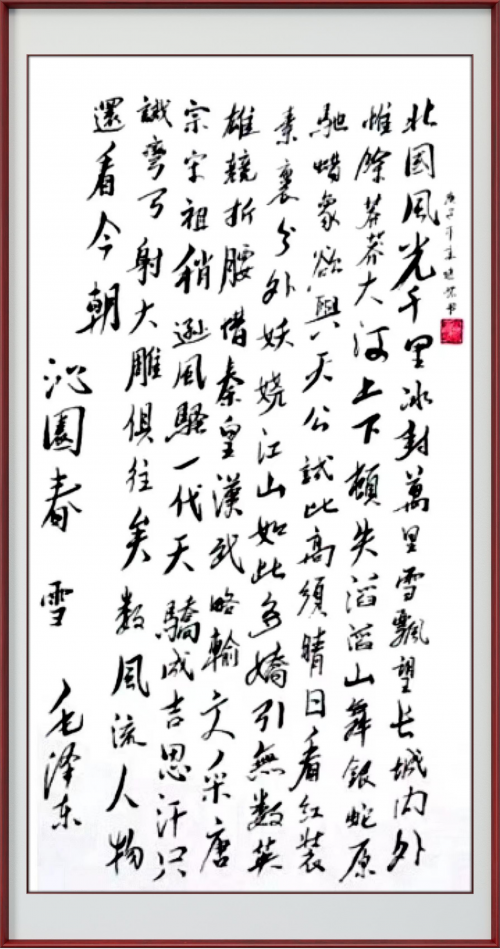 北國風光千里冰封萬里雪飄望长城内外
惟餘莽莽大河上下頓失滔滔山舞銀蛇原
馳蜡象欲與天公試比高須晴日看红装
素裹分外妖娆江山如此多嬌引無数英
雄競折腰惜秦皇漢武略輸文采唐
宗宋祖稍逊風騷一代天驕成吉思汗只
識彎弓射大雕俱往矣数風流人物
還看今朝
沁園春 雪 毛泽东
庚子年